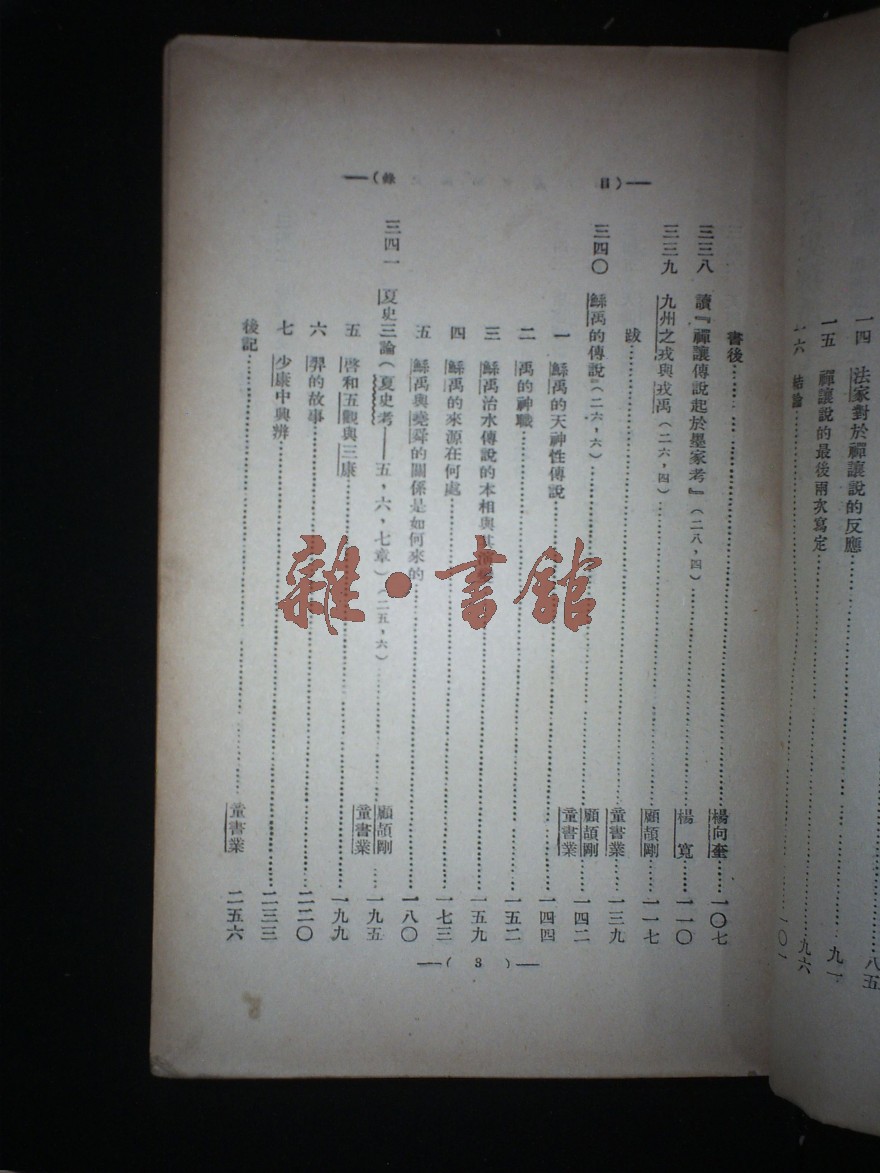 一四 法家對於禪讓說的反應……八五
一五 禪讓說的最後兩次寫定……九一
一六 結論……九六
一〇一
目錄
書後……楊向奎……一〇七
三三八 讀『禪讓傳說起於墨家考』(二八,四)……楊寬……一一〇
三三九 九州之戎與戎禹(二六,四)……顧頡剛……一一七
跋……童書業……一三九
三四〇 鯀禹的傳說(二六,六)……顧頡剛 童書業……一四二
一 鯀禹的天神性傳說……一四四
二 禹的神職……一五二
三 鯀禹治水傳說的本相與其……一五九
四 鯀禹的來源在何處……一七三
五 鯀禹與堯舜的關係是如何來的……一八〇
三四一 夏史三論(夏史考——五,六,七章)(二五,六)……顧頡剛 童書業……一九五
五 啓和五觀與三康……一九九
六 羿的故事……二二〇
七 少康中興辨……二三三
後記……童書業……二五六
(3)
雜·書館